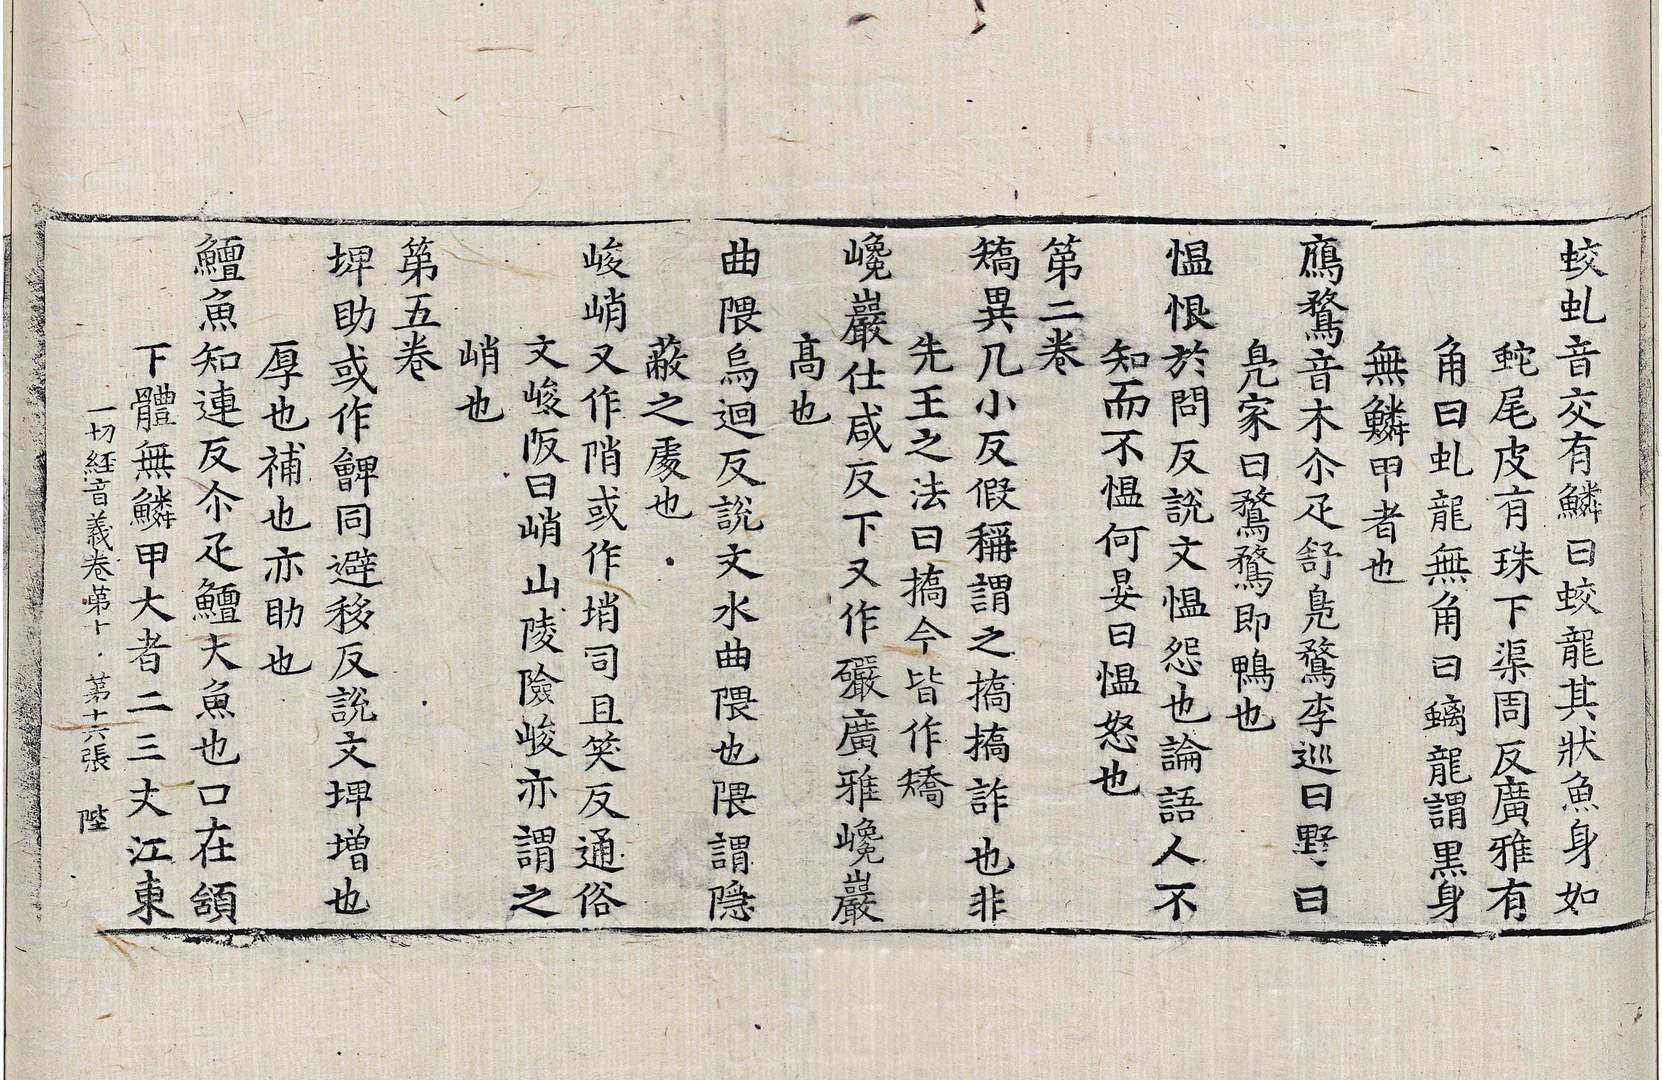 蛟虬音交有鱗曰蛟龍其狀魚身如
蛇尾皮有珠下渠周反廣雅有
角曰虬龍無角曰螭龍謂黑身
無鱗甲者也
鴈鶩音木尒疋舒鳬鶩李巡曰野曰
鳬家曰鶩鶩即鴨也
愠恨於問反說文愠怨也論語人不
知而不愠何晏曰愠怒也
第二卷
矯異几小反假稱謂之撟撟詐也非
先王之法曰撟今皆作矯
巉巖仕咸反下又作礹廣雅巉巖
高也
曲隈烏迴反說文水曲隈也隈謂隱
蔽之處也
峻峭又作陗或作塉司且笑反通俗
文峻阪曰峭山陵險峻亦謂之
峭也
第五卷
埤助或作朇同避移反說文埤增也
厚也補也亦助也
鱣魚知連反尒疋鱣大魚也口在頷
下體無鱗甲大者二三丈江東
一切経音義卷第十 第十六張 陛